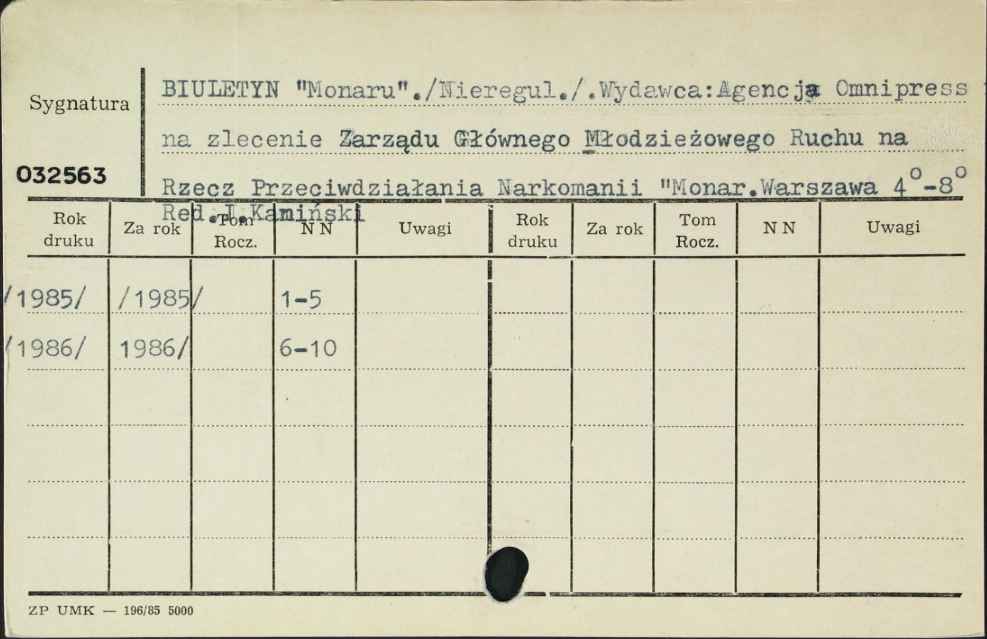 BIULETYN "Monaru"./Nieregul./.Wydawca:Agencja Omnipress
Sygnatura
na zlecenie Zarządu Głównego Młodzieżowego Ruchu na
032563
Rzecz Przeciwdziałania Narkomanii "Monar.Warszawa 4°-8°
Red.I.Kamiński
Rok druku Za rok Tom Rocz. N N Uwagi Rok druku Za rok Tom Rocz. N N Uwagi
/1985/ /1985/ 1-5
/1986/ 1986/ 6-10
ZP UMK — 196/85 5000